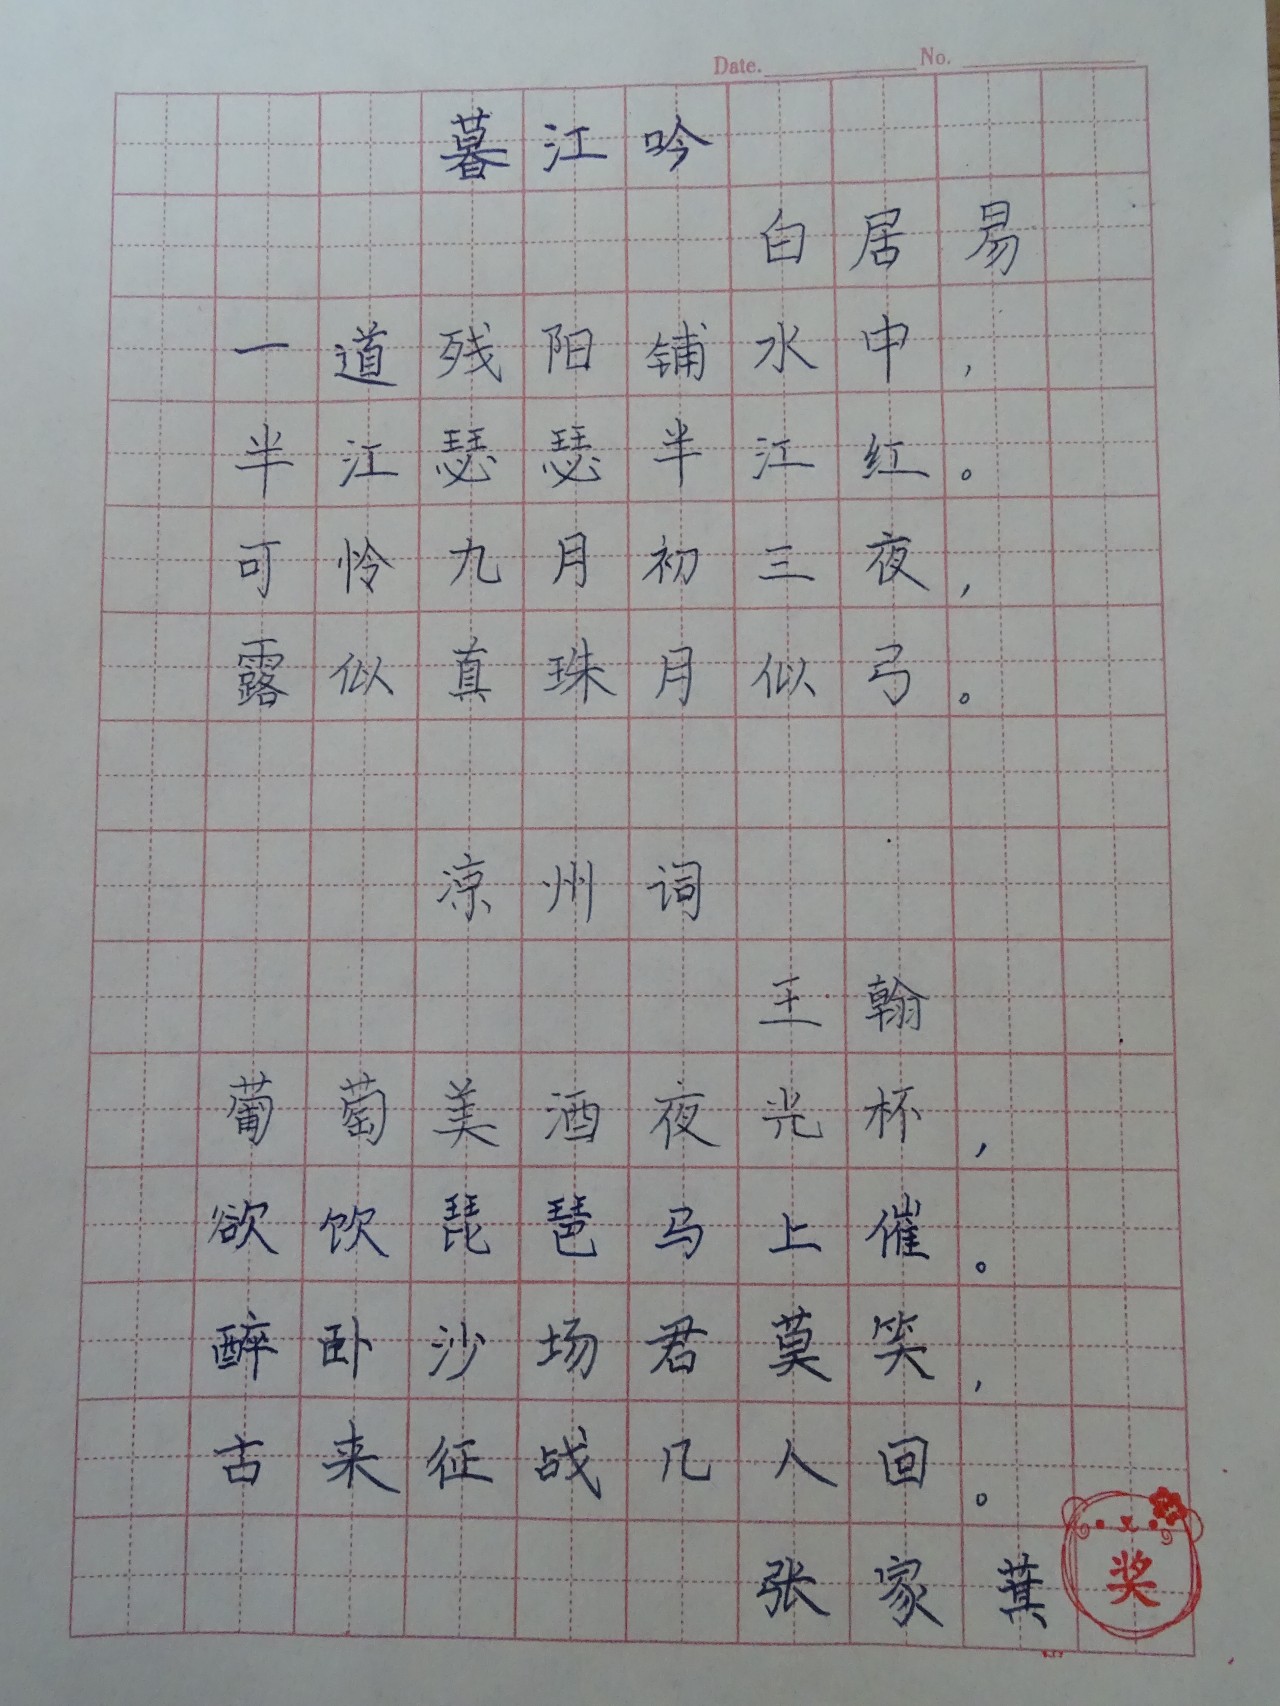 Date. No.
暮江吟
白居易
一道残阳铺水中，
半江瑟瑟半江红。
可怜九月初三夜，
露似真珠月似弓。
凉州词
王翰
葡萄美酒夜光杯，
欲饮琵琶马上催。
醉卧沙场君莫笑，
古来征战几人回。
张家萁
奖